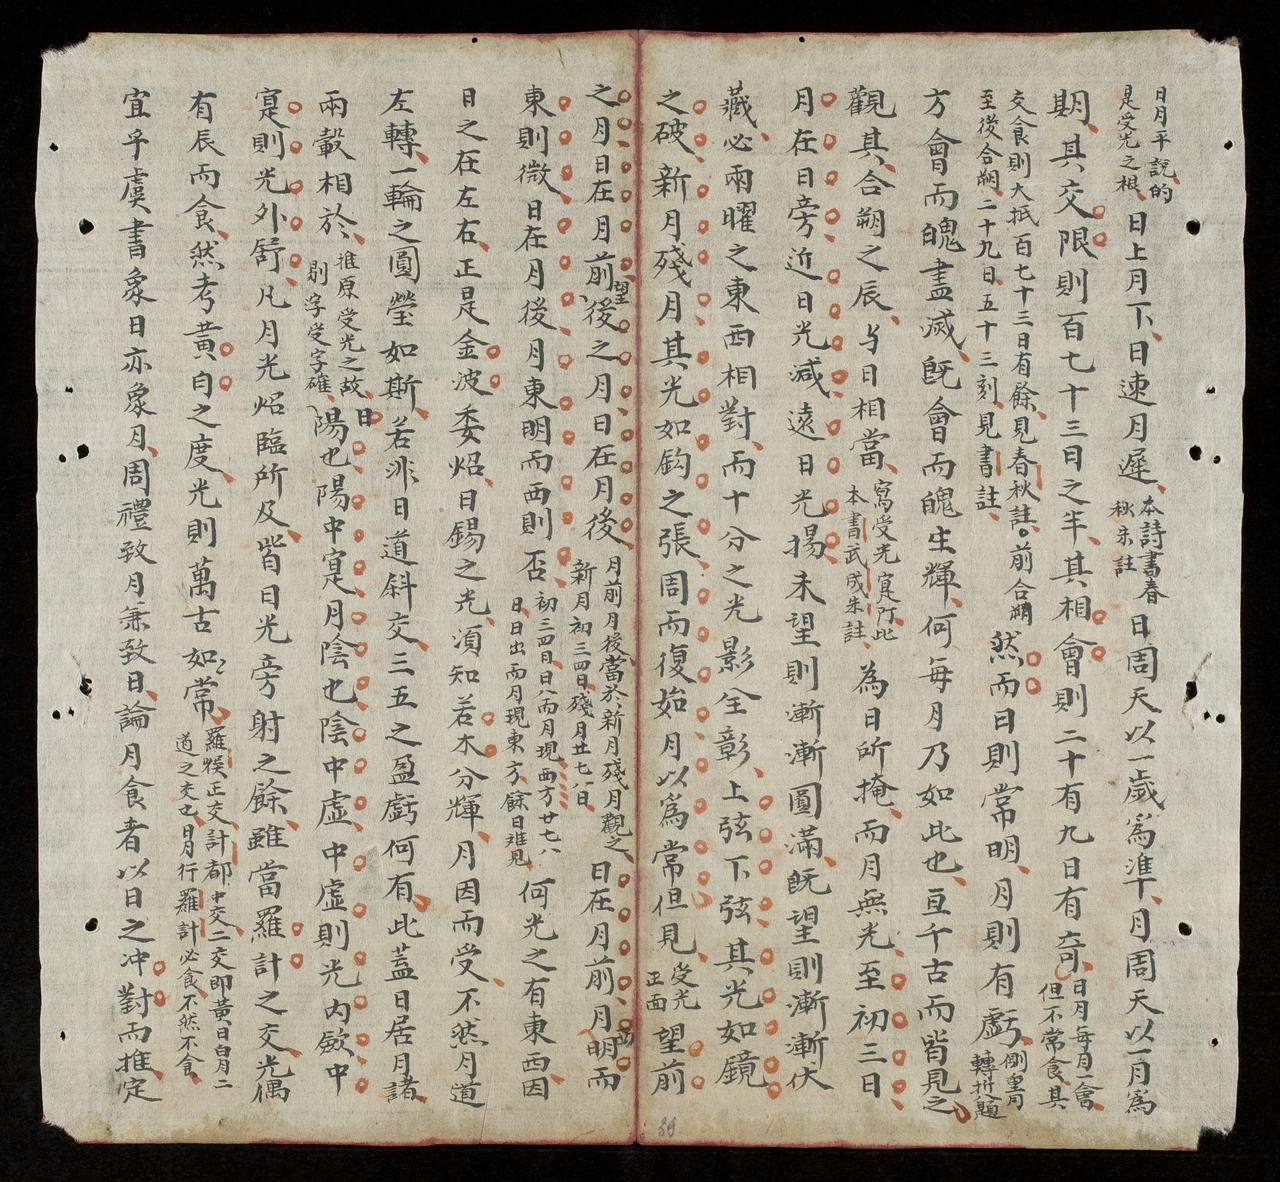 日月平說的是受光之根日上月下日速月遲本詩書春秋朱註日周天以一歲爲準月周天以一月爲
期其交限則百七十三日之半其相會則二十有九日有奇日月每月一會但不常食其
交食則大抵百七十三日有餘見春秋註。前合朔至後合朔二十九日五十三刻見書註然而日則常明月則有虧
方會而魄盡減既會而魄生輝何每月乃如此也亘千古而皆見之
觀其合朔之辰与日相當寫受光寔叮此本書武成朱註為日所掩而月無光至初三日
月在日旁近日光減遠日光揚未望則漸漸圓滿既望則漸漸伏
藏必兩曜之東西相對而十分之光影全彰上弦下弦其光如鏡
之破新月殘月其光如鈎之張周而復始月以爲常但見受光正面望前
之月日在月前望後之月日在月後月前月後當於新月殘月觀之新月初三四日殘月廿七八日日在月前月明西而
東則微日在月後月東明而西則否初三四日日入而月現西方廿七八日日出而月現東方餘日难見何光之有東西因
日之在左右正是金波委炤日錫之光湏知若木分輝月因而受不然月道
左轉一輪之圓瑩如斯若非日道斜交三五之盈虧何有此蓋日居月諸
兩轂相於推原受光之故剔字受字確日陽也陽中寔月陰也陰中虛中虛則光内歛中
寔則光外舒凡月光炤臨所及皆日光旁射之餘雖當羅計之交光偶
有辰而食然考黃白之度光則萬古如常羅猴正交計都中交二交即黃日白月二道之交也日月行羅計必食不然不食
宜乎虞書象日亦象月周禮致月兼致日論月食者以日之冲對而推定